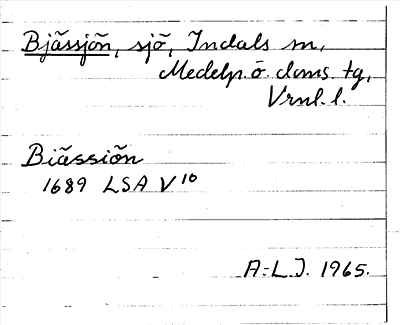 Bjässjön, sjö, Indals sn,
Medelp. ö. doms. tg,
Vrnl. l.
Biässiön
1689 LSA V¹⁰
A-L.J. 1965.